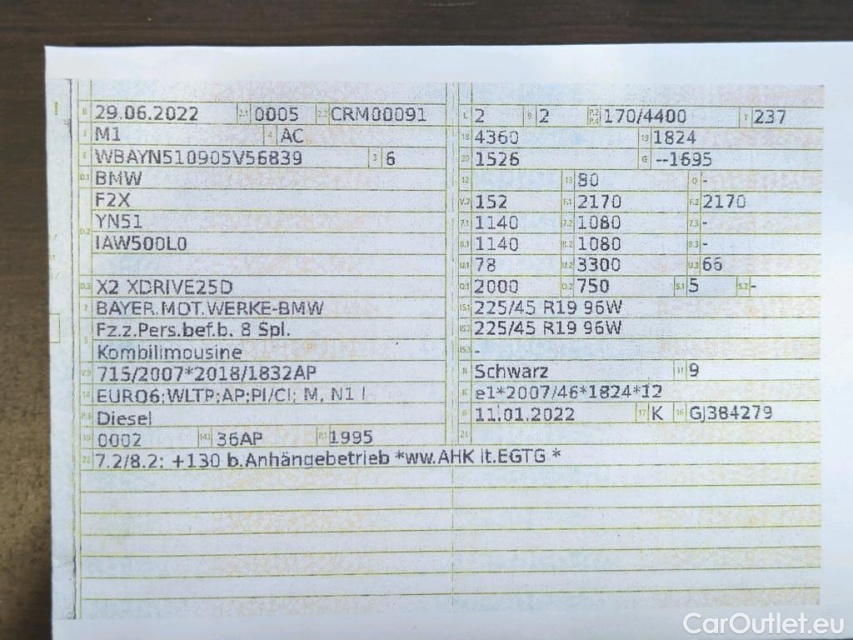 B 29.06.2022 2.1 0005 2.2 CRM00091
J M1 4 AC
E WBAYN510905V56839 3 6
D.1 BMW
F2X
D.2 YN51
IAW500L0
D.3 X2 XDRIVE25D
2 BAYER.MOT.WERKE-BMW
5 Fz.z.Pers.bef.b. 8 Spl.
Kombilimousine
V.9 715/2007*2018/1832AP
14 EURO6;WLTP;AP;PI/CI; M, N1 I
P.3 Diesel
10 0002 14.1 36AP P.1 1995
22 7.2/8.2: +130 b.Anhängebetrieb *ww.AHK lt.EGTG *
L 2 9 2 P.2 P.4 170/4400 T 237
18 4360 19 1824
20 1526 G --1695
12 13 80 Q -
V.7 152 F.1 2170 F.2 2170
7.1 1140 7.2 1080 7.3 -
8.1 1140 8.2 1080 8.3 -
U.1 78 U.2 3300 U.3 66
O.1 2000 O.2 750 S.1 5 S.2 -
15.1 225/45 R19 96W
15.2 225/45 R19 96W
15.3 -
R Schwarz 11 9
K e1*2007/46*1824*12
6 11.01.2022 17 K 16 GJ384279
21
CarOutlet.eu